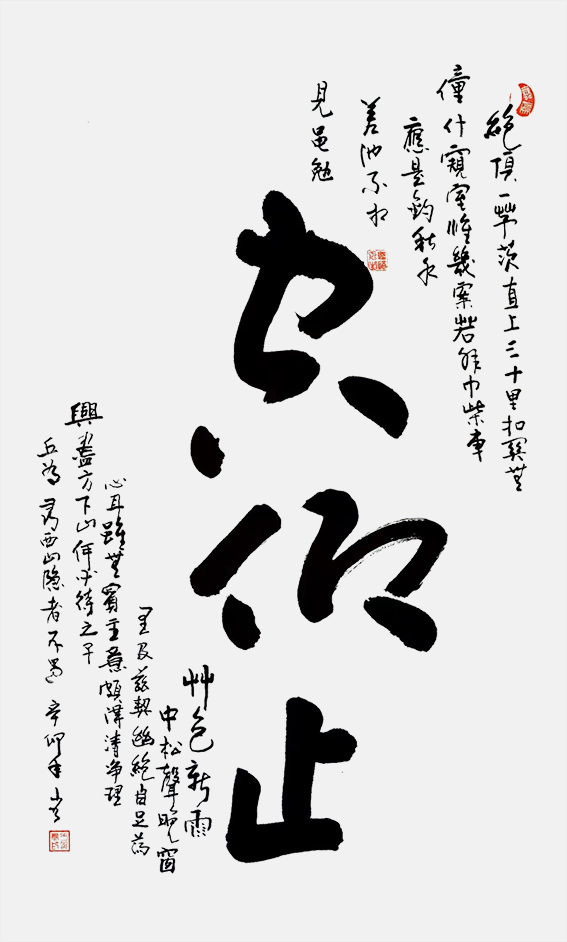 絶頂一茅茨直上三十里扣関無
僮仆窺室惟幾案若非巾柴車
應是釣秋水
差池不相
見黽勉
空仰止
艸色新雨
中松聲晚窗
里及茲契幽絶自足蕩
心耳雖無賓主意頗得清净理
興盡方下山何必待之子
丘為尋西山隐者不遇 辛卯年